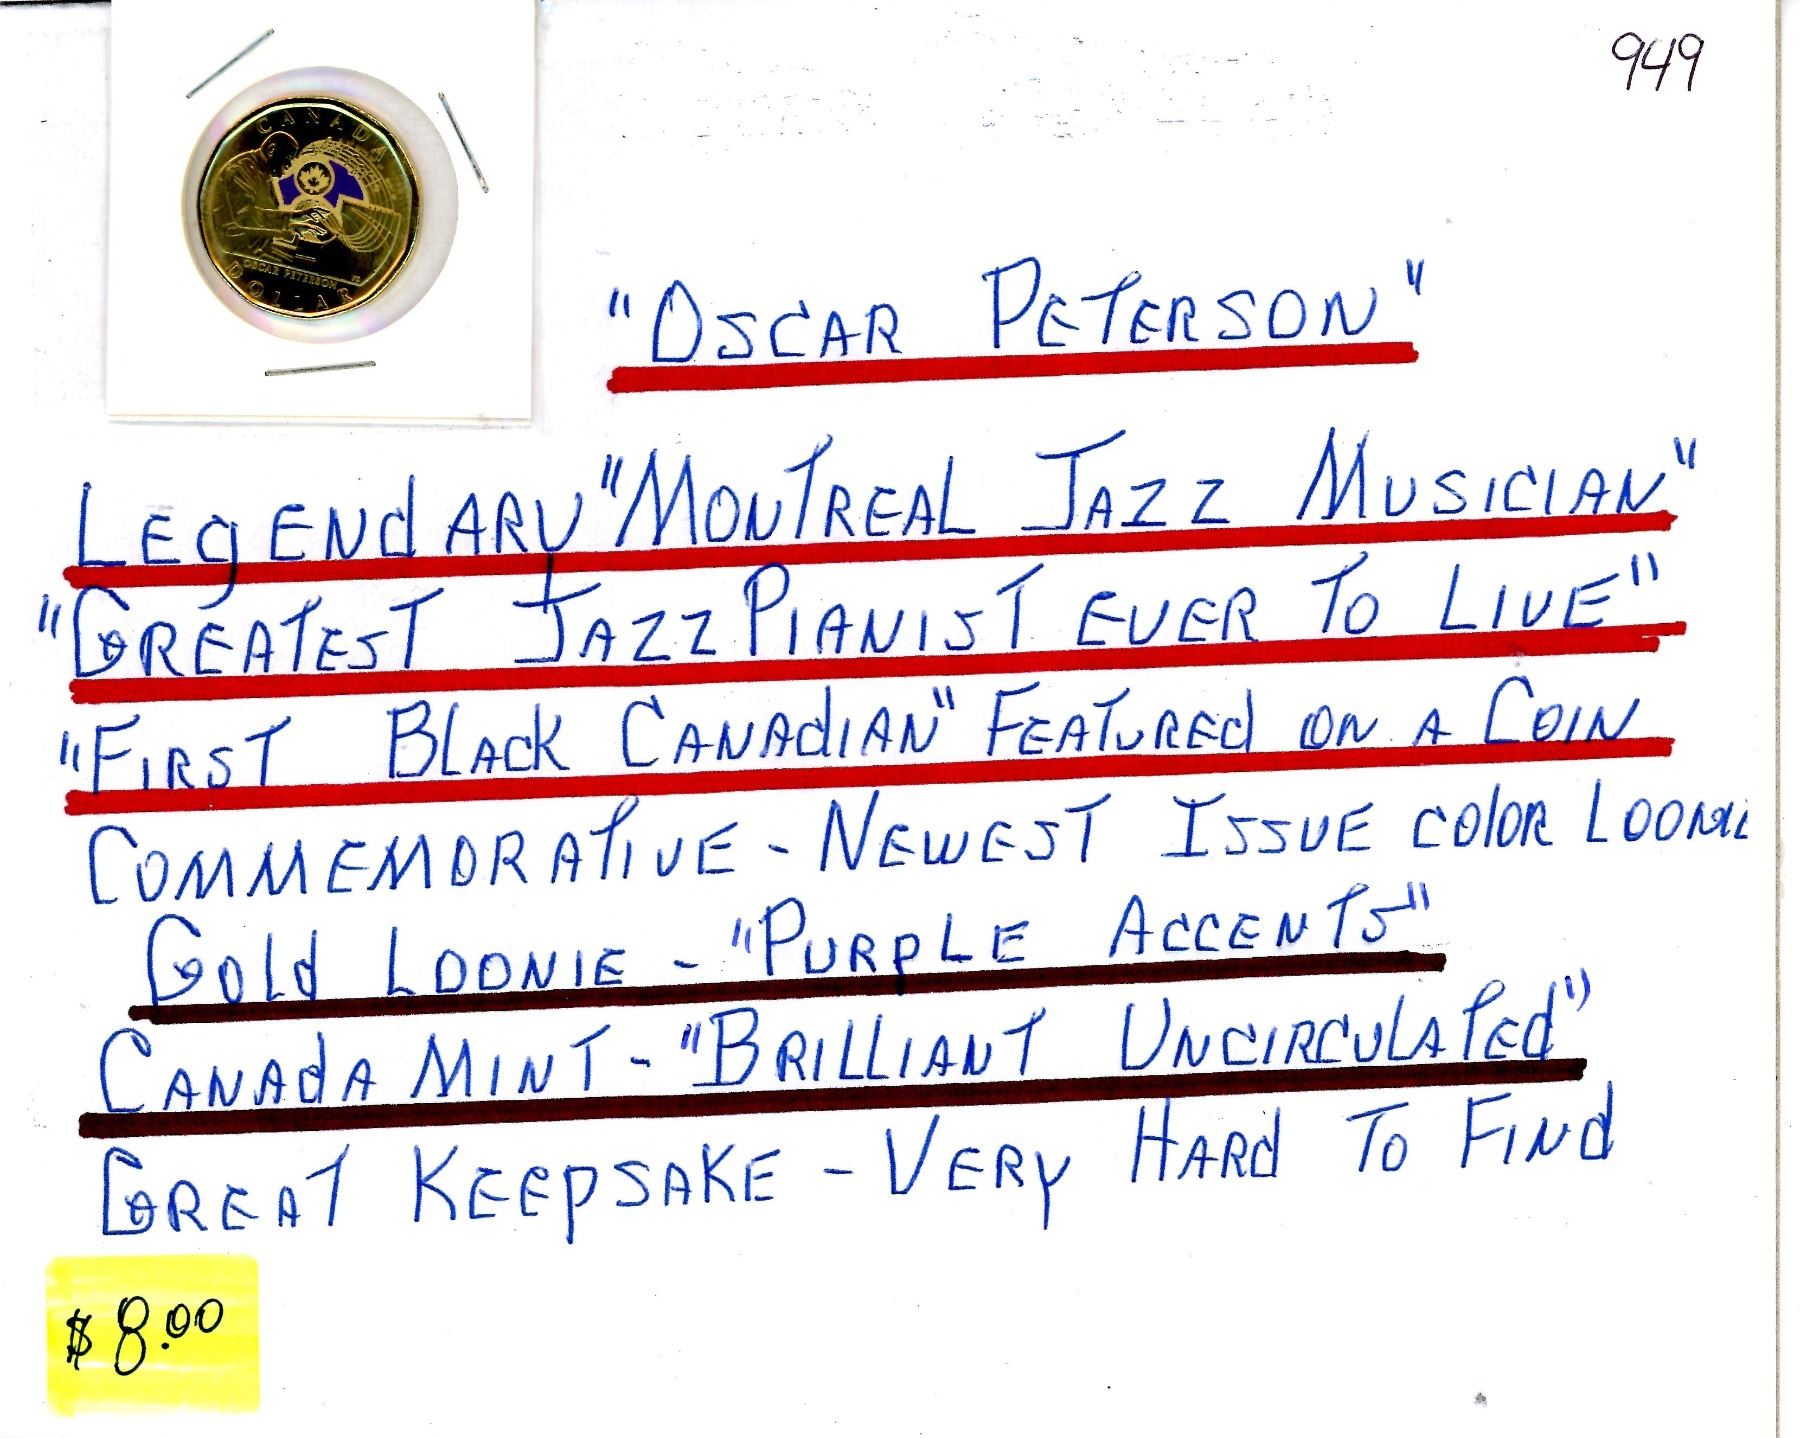 949
CANADA
OSCAR PETERSON
DOLLAR
"OSCAR PETERSON"
LEGENDARY "MONTREAL JAZZ MUSICIAN"
"GREATEST JAZZ PIANIST EVER TO LIVE"
"FIRST BLACK CANADIAN" FEATURED ON A COIN
COMMEMORATIVE - NEWEST ISSUE COLOR LOONIE
GOLD LOONIE - "PURPLE ACCENTS"
CANADA MINT - "BRILLIANT UNCIRCULATED"
GREAT KEEPSAKE - VERY HARD TO FIND
$8.00